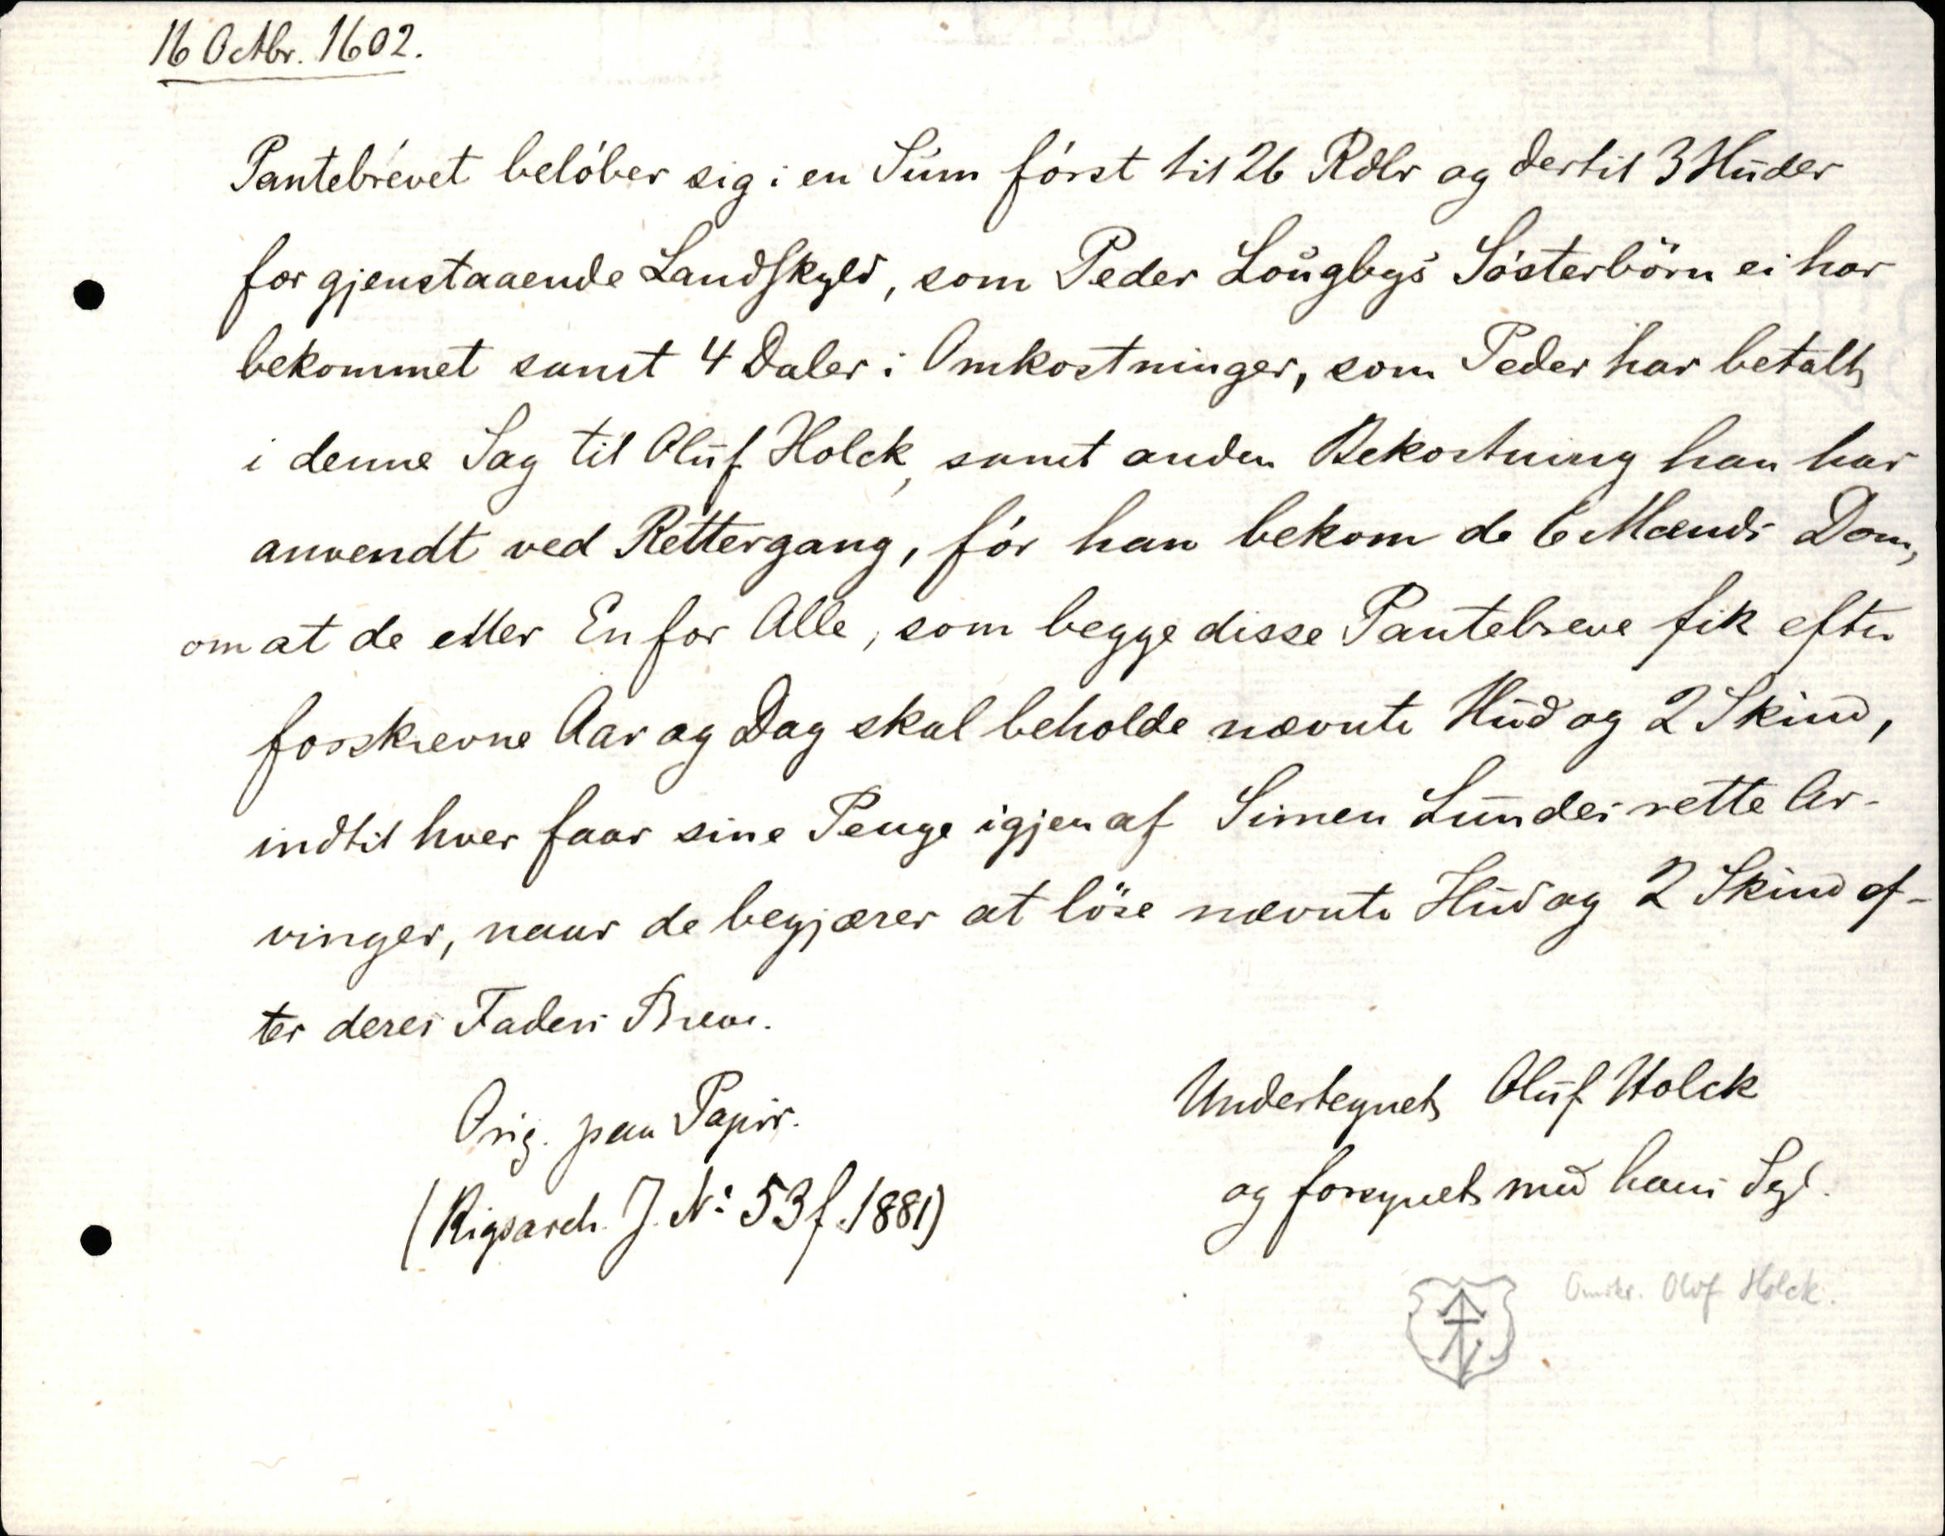 16 Octbr. 1602.
Pantebrevet belöber sig i en Sum först til 26 Rdlr og dertil 3 Huder
for gjenstaaende Landskyld, som Peder Lougbys Sösterbörn ei har
bekommet samt 4 Daler i Omkostninger, som Peder har betalt
i denne Sag til Oluf Holck, samt anden Bekostning han har
anvendt ved Rettergang, för han bekom de 6 Mænds Dom,
om at de eller En for Alle, som begge disse Pantebreve fik efter
forskrevne Aar og Dag skal beholde nævnte Hud og 2 Skind,
indtil hver faar sine Penge igjen af Simen Lundes rette Ar-
vinger, naar de begjærer at löse nævnte Hud og 2 Skind ef-
ter deres Faders Breve.
Undertegnet Oluf Holck
og forsynet med hans Segl.
Orig. paa Papir.
(Rigsarch. J. No: 53 f. 1881)
Omskr. Olof Holck.